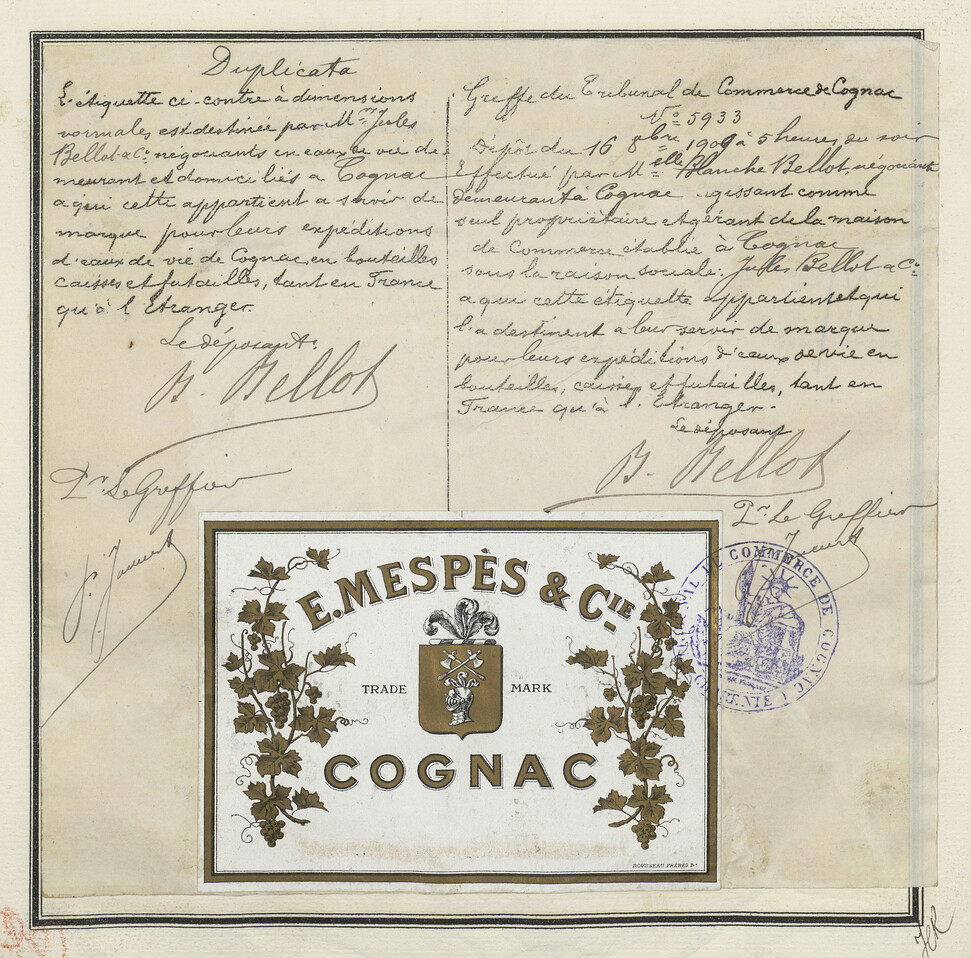 Duplicata
L'étiquette ci-contre à dimensions
normales est destinée par Mrs Jules
Bellot & Cie négociants en eaux de vie de
meurant et domiciliés à Cognac
a qui cette appartient a servir de
marque pour leurs expéditions
d'eaux de vie de Cognac, en bouteilles
caisses et futailles, tant en France
qu'à l'Etranger.
Le déposant.
B. Bellot
Pr. Le Greffier
Greffe du Tribunal de Commerce de Cognac
No 5933
Dépôt du 16 8bre 1909 à 5 heures du soir
Effectué par Melle Blanche Bellot, négociant
demeurant à Cognac agissant comme
seul propriétaire et gérant de la maison
de Commerce établie à Cognac
sous la raison sociale: Jules Bellot & Cie
a qui cette étiquette appartient et qui
l'a destinent a leur servir de marque
pour leurs expéditions d'eaux de vie en
bouteilles, caisses et futailles, tant en
France qu'à l'Etranger-
Le déposant
B. Bellot
Pr. Le Greffier
E. MESPÈS & CIE
TRADE MARK
COGNAC
ROUSSEAU FRÈRES Bx
COMMERCE DE COGNAC